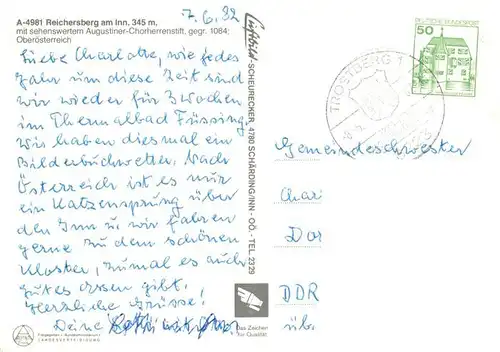 A-4981 Reichersberg am Inn, 345 m,
mit sehenswertem Augustiner-Chorherrenstift, gegr. 1084;
Oberösterreich
7.6.82
Liebe Charlotte, wie jedes
Jahr um diese Zeit sind
wir wieder für 3 Wochen
im Thermalbad Füssing.
Wir haben diesmal ein
Bilderbuchwetter. Nach
Österreich ist es nur
ein Katzensprung über
den Inn u. wir fahren
gerne zu dem schönen
Kloster, zumal es auch
gutes Essen gibt.
Herzliche Grüße!
Deine
Luftbild SCHEURECKER, 4780 SCHÄRDING/INN - OÖ. - TEL. 23 29
Das Zeichen
für Qualität
LANDESVERTEIDIGUNG
TROSTBERG 1
50
DEUTSCHE BUNDESPOST
Gemeindeschwester
Char
Dor
DDR
üb.